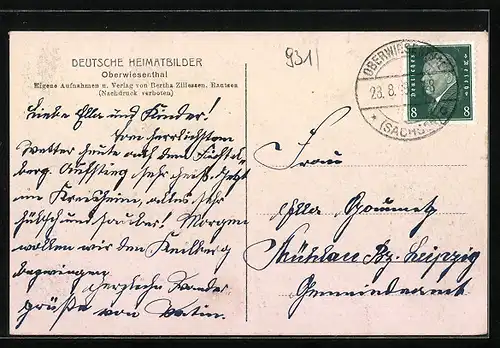 DEUTSCHE HEIMATBILDER
Oberwiesenthal
Eigene Aufnahmen u. Verlag von Bertha Zillessen, Bautzen
(Nachdruck verboten)
931
OBERWIESENTHAL
23.8.
(SACHSEN)
Deutsches Reich
8 8
Liebe Ella und Kinder!
Von herrlichstem
Wetter heute auf dem Fichtel-
berg. Aufstieg sehr heiß. Jetzt
im Kreisheim, alles sehr
hübsch und sauber! Morgen
wollen wir den Keilberg
bezwingen.
herzliche Wander
grüße von
Frau
Ella
Mühlau Bz. Leipzig
Gemeindeamt